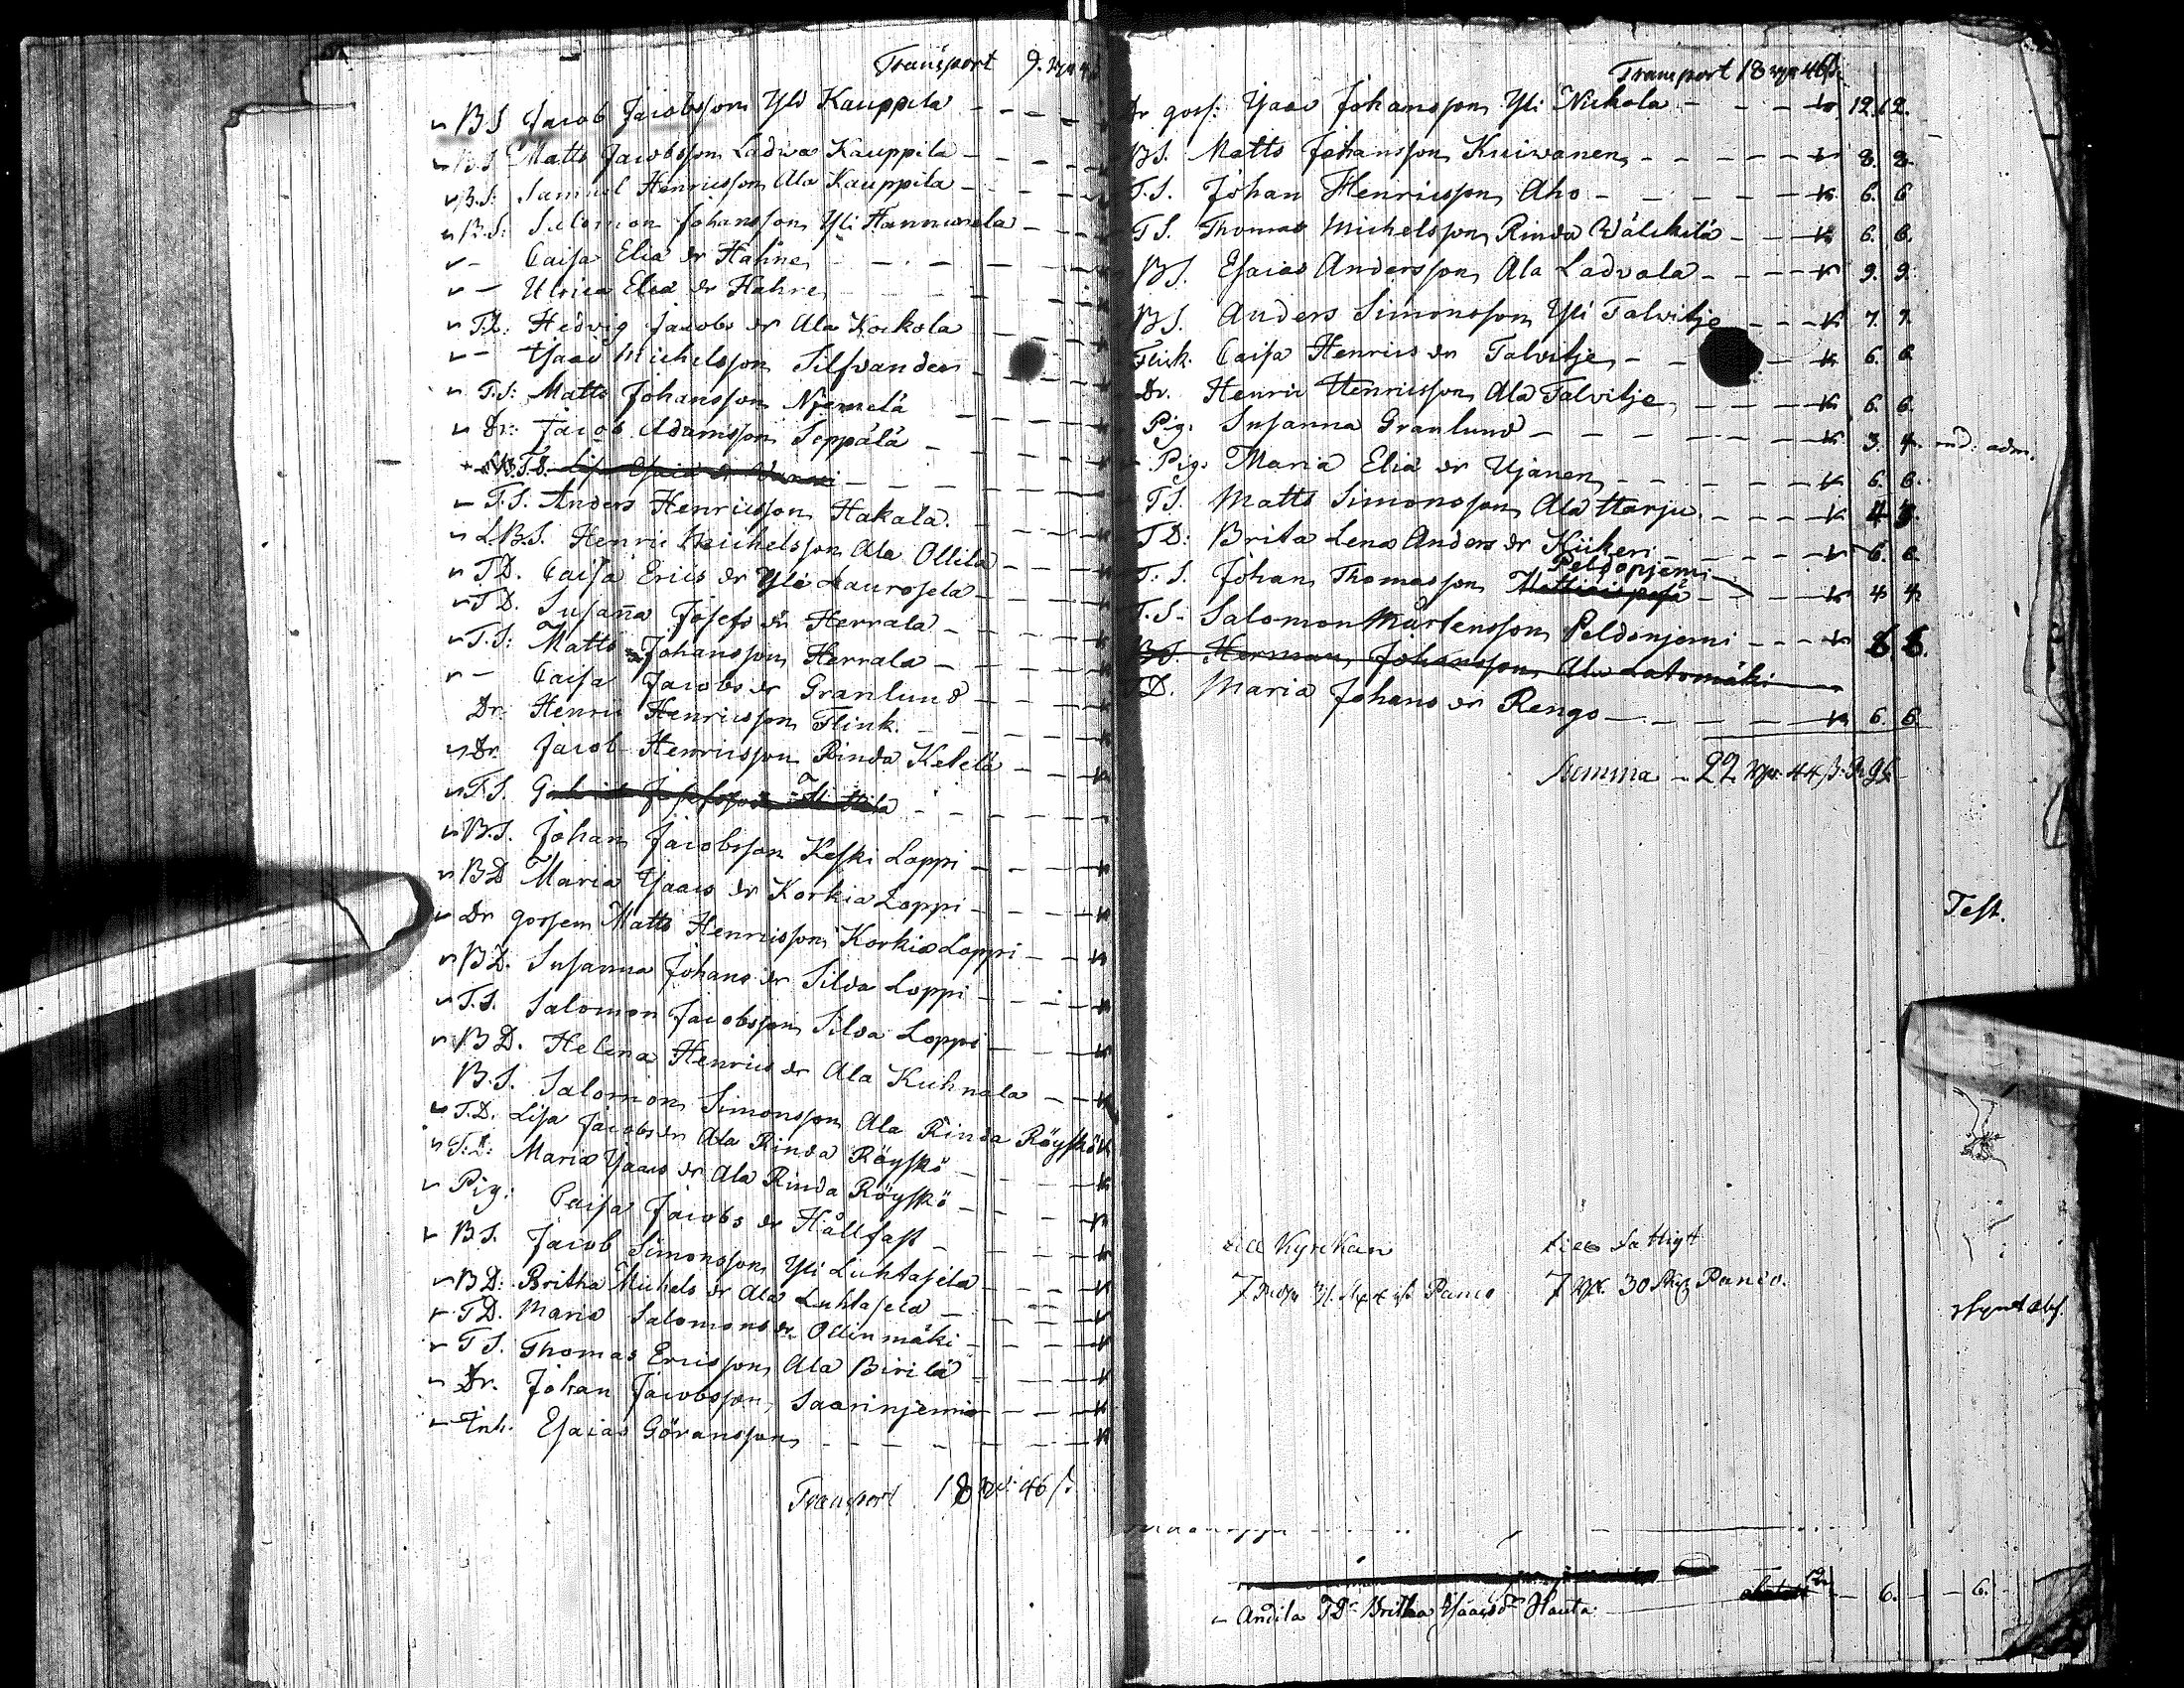 Transport 9.
B S Jacob Jacobsson Yli Kauppila
B.S Matts Jacobsson Ladwa Kauppila
B.S: Samuel Henricsson Ala Kauppila
B.S: Salomon Johansson Yli Hannuxela
Caisa Elia dr Hahne
Ulrica Elia dr Hahne
T.D: Hedvig Jacobs dr Ala Kockola
Ysaac Michelsson Silfvander
T.S: Matts Johansson Njemelä
Dr: Jacob Adamsson Seppälä
T.D. Lisa Esaiæ dr
T.S. Anders Henricsson Hakala.
L.B.S. Henric Michelsson Ala Ollila
T.D. Caisa Erics dr Yli Laurosela
T D. Susaña Josefs dr Herrala
T.S: Matts Johansson Herrala
Caisa Jacobs dr Granlund
Dr. Henric Henricsson Flink.
Dr. Jacob Henricsson Rinda Ketelä
T.S. Josefsson
B.S. Johan Jacobsson Keski Loppi
B D Maria Ysaacs dr Korkia Loppi
Dr gossen Matts Henricsson Korkia Loppi
B D. Susanna Johans dr Silda Loppi
T.S. Salomon Jacobsson Silda Loppi
B D. Helena Henrics dr Ala Kuhnala
B.S. Salomon Simonsson Ala Rinda Röyskö
T.D. Lisa Jacobs dr Ala Rinda Röyskö
T.D: Maria Ysaacs dr Ala Rinda Röyskö
Pig: Caisa Jacobs dr Hållfast
B S. Jacob Simonsson Yli Luhtasela
B D: Britha Michels dr Ala Luhtasela
T D. Maria Salomons dr Ollinmäki
T S. Thomas Ericsson Ala Birilä
Dr. Johan Jacobsson Saarinjemi
Inh. Esaias Göransson
Transport 18 46 s.
Transport 18 46 s.
Dr gos: Ysaac Johansson Yli Nickola 12. 12.
B S. Matts Johansson Kuiwanen 8. 8.
T.S. Johan Henricsson Aho 6. 6
T S. Thomas Michelsson Rinda Wälckilä 6. 6.
B S. Esaias Andersson Ala Ladvala 9. 9.
B S. Anders Simonsson Yli Talvitje 7. 7.
Flick. Caisa Henrics dr Talvitje 6. 6
Dr. Henric Henricsson Ala Talvitje 6. 6.
Pig. Susanna Granlund 3. 4.
Pig. Maria Elia dr Ujanen 6. 6.
T S. Matts Simonsson Ala Harju 4
T D: Brita Lena Anders dr Kiikeri 6. 6.
Peldonjemi
T: S. Johan Thomasson 4 4
T.S. Salomon Mårtensson Peldonjemi 6. 6.
B S. Herman Johansson Ala Latomäki
T D. Maria Johans dr Rengo 6. 6
Summa 22 44
Test.
till Kyrkan till Fattigt
7 Banco 7 30 Banco.
Andila T Dr Britha Ysaacs dr Hauta 6. 6.